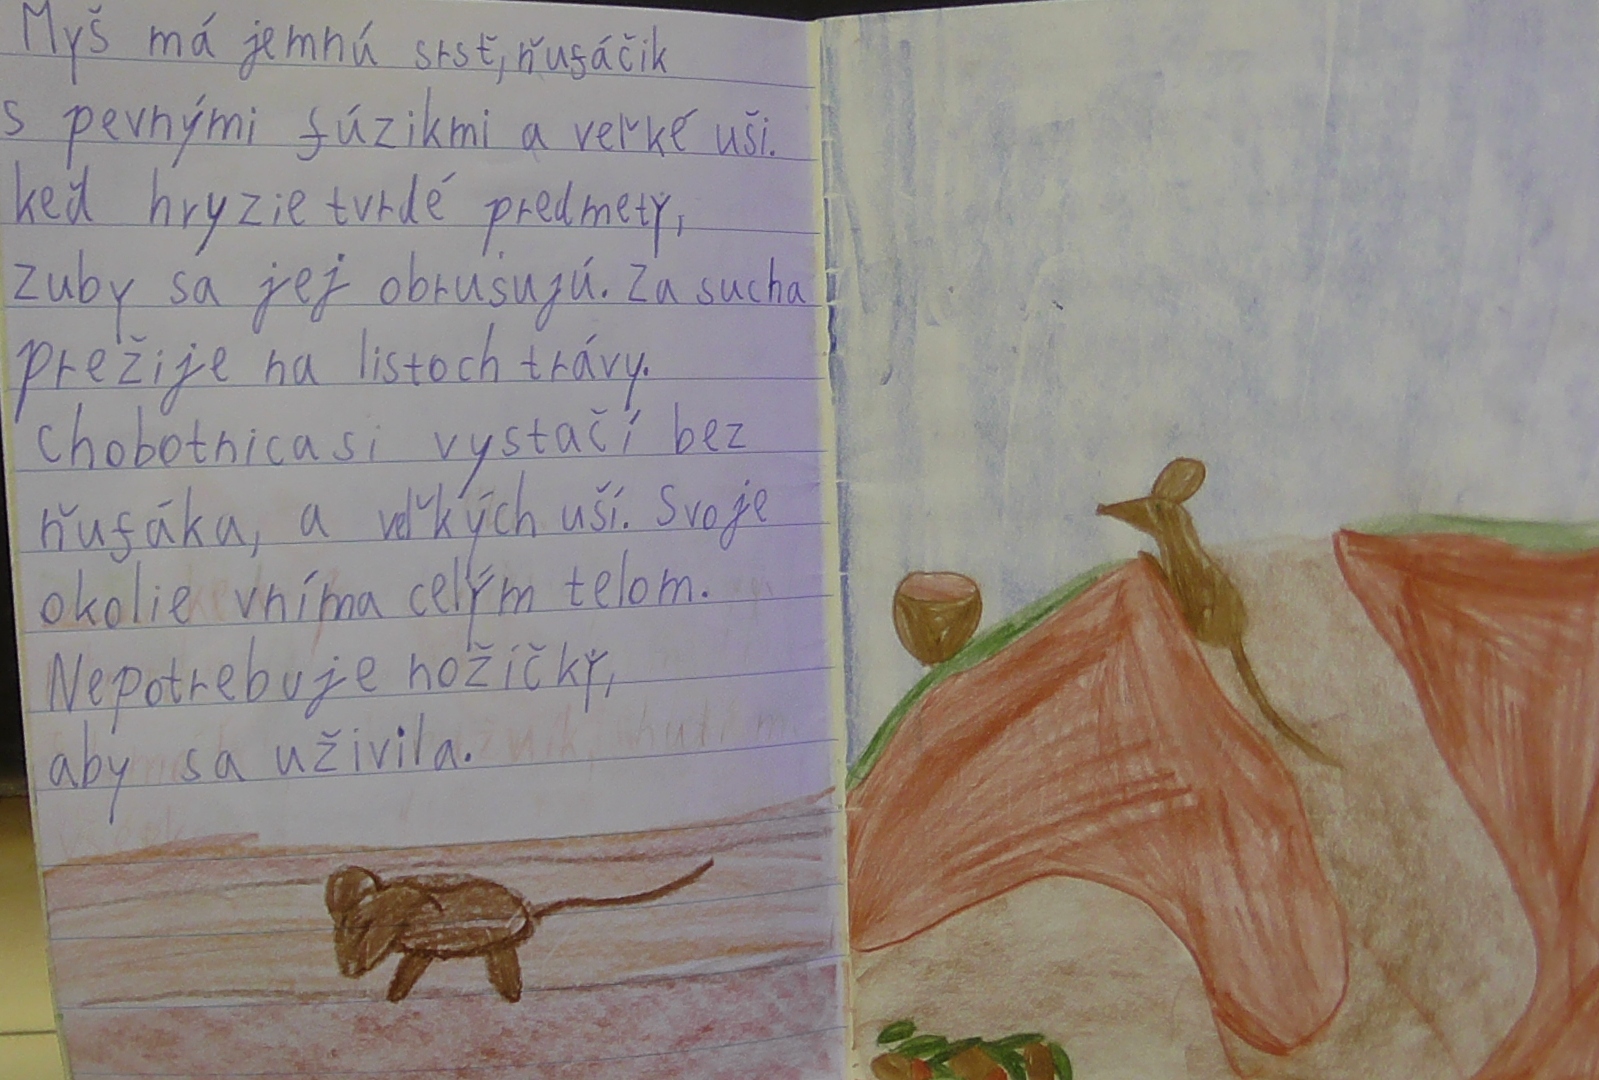 Myš má jemnú srsť, ňufáčik
s pevnými fúzikmi a veľké uši.
keď hryzie tvrdé predmety,
zuby sa jej obrusujú. Za sucha
prežije na listoch trávy.
chobotnica si vystačí bez
ňufáka, a veľkých uší. Svoje
okolie vníma celým telom.
Nepotrebuje nožičky,
aby sa uživila.